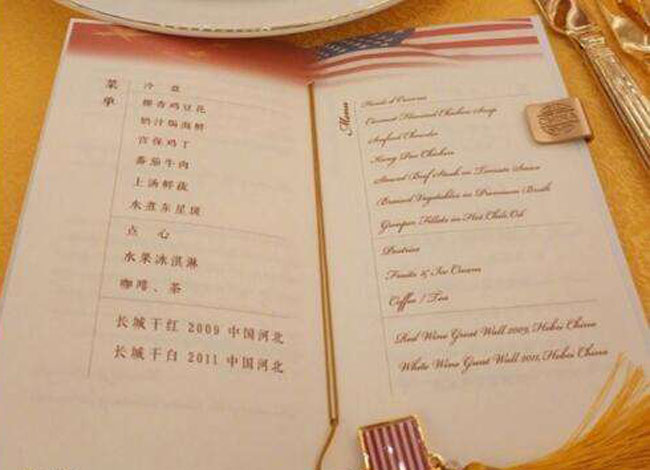 菜单
冷 盘
椰香鸡豆花
奶汁焗海鲜
宫保鸡丁
番茄牛肉
上汤鲜蔬
水煮东星斑
点 心
水果冰淇淋
咖啡、茶
长城干红 2009 中国河北
长城干白 2011 中国河北
Menu
Hors d'Oeuvres
Coconut Flavored Chicken Soup
Seafood Chowder
Kung Pao Chicken
Stewed Beef Steak in Tomato Sauce
Braised Vegetables in Premium Broth
Grouper Fillets in Hot Chili Oil
Pastries
Fruits & Ice Cream
Coffee / Tea
Red Wine Great Wall 2009, Hebei China
White Wine Great Wall 2011, Hebei China